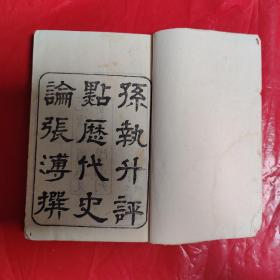 孫執升評
點歷代史
論張溥撰